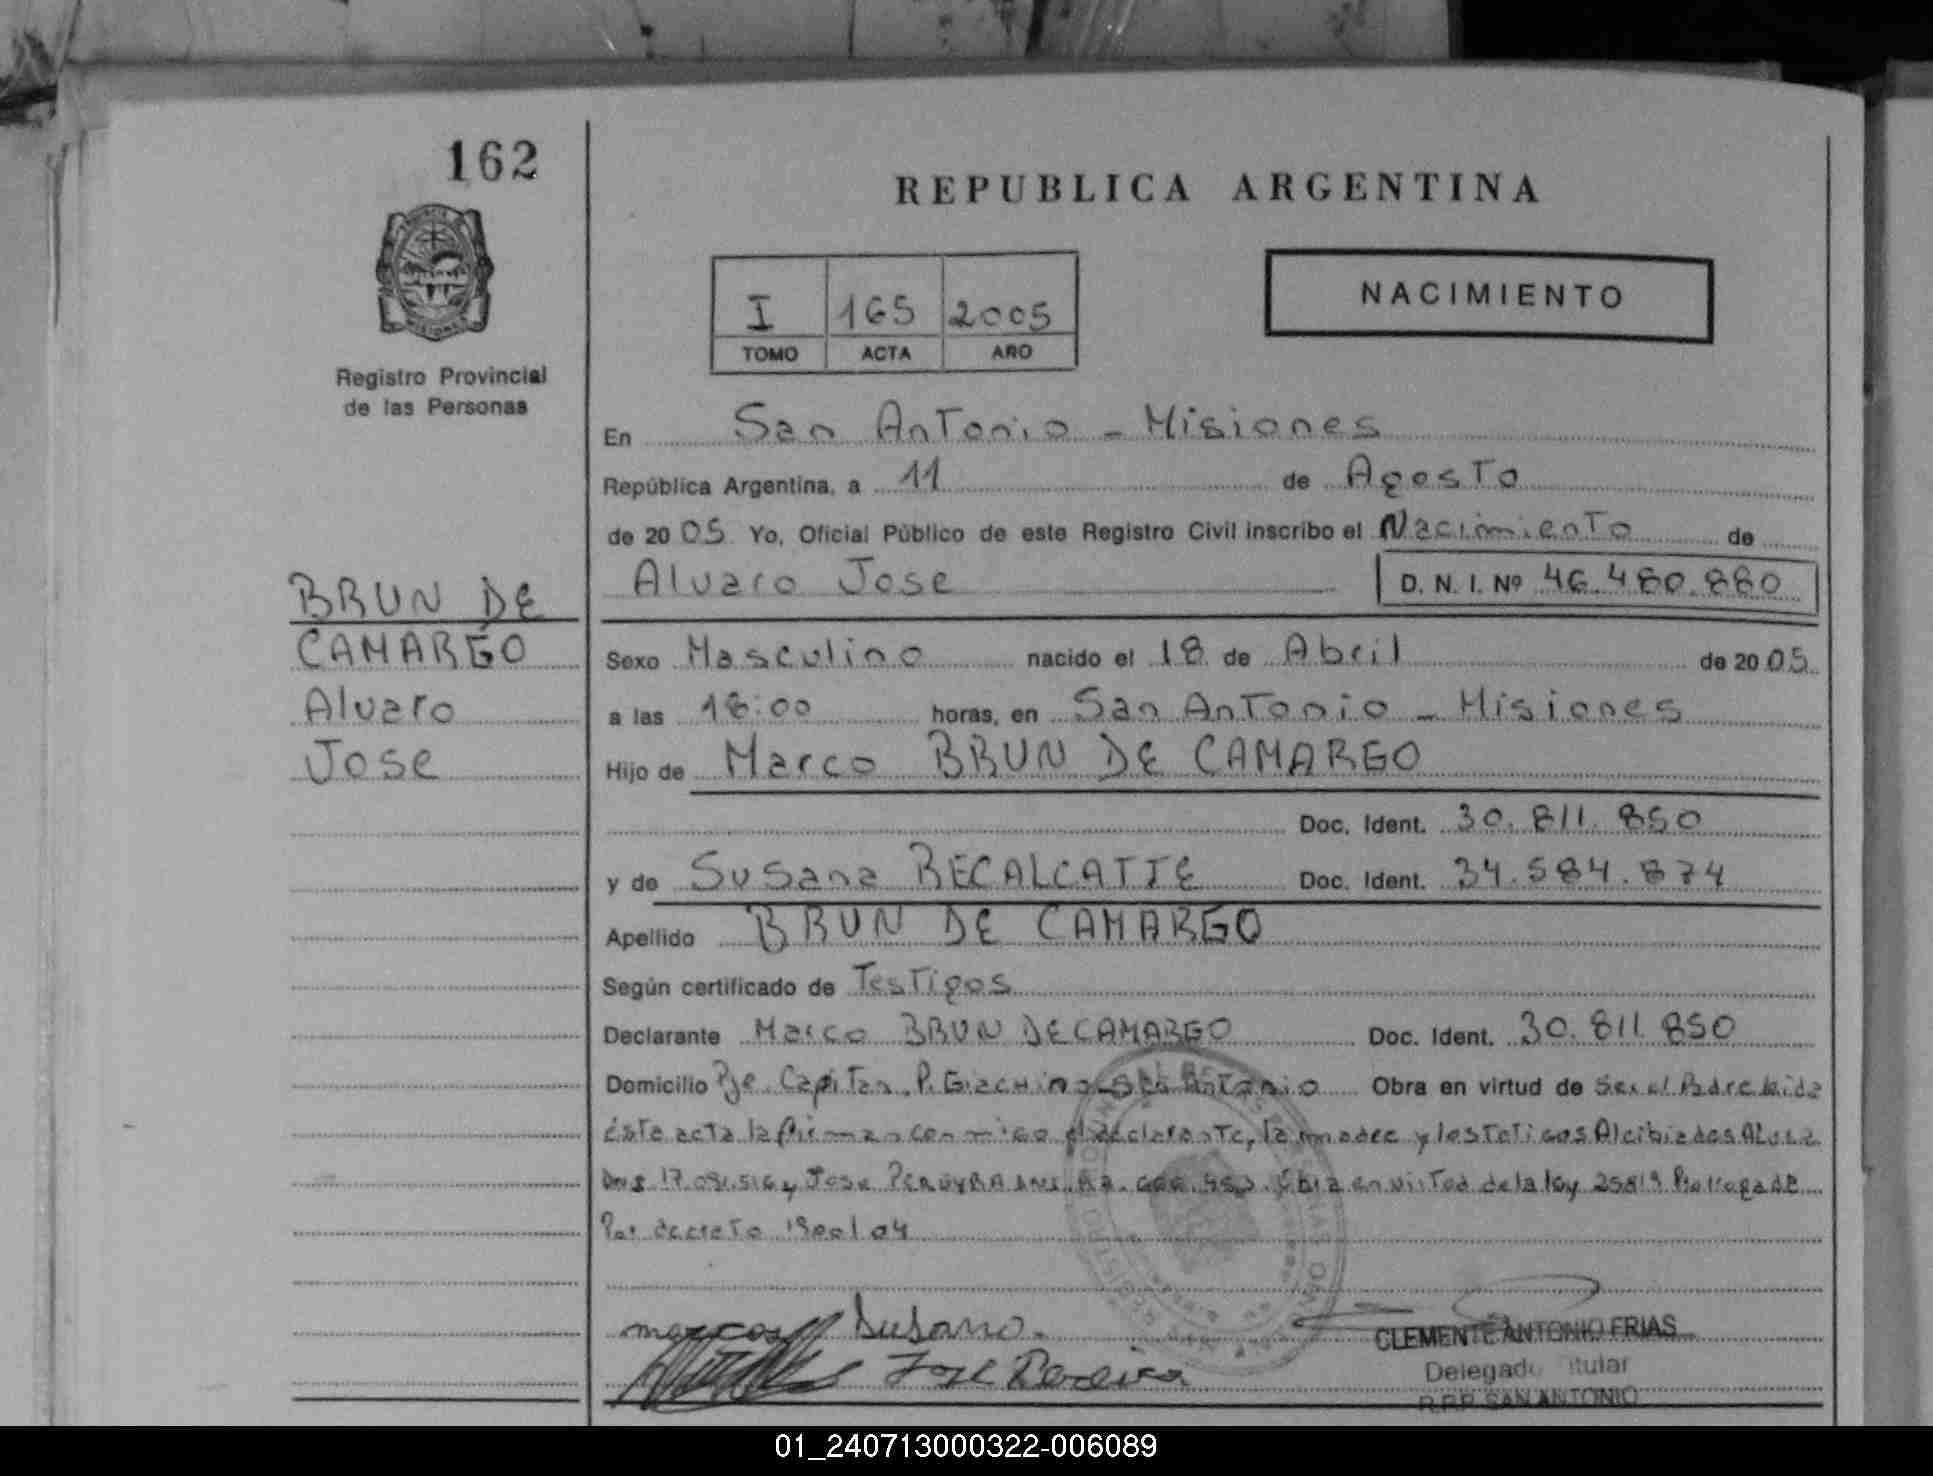 162
REPUBLICA ARGENTINA
PROVINCIA
MISIONES
Registro Provincial
de las Personas
I 165 2005
TOMO ACTA AÑO
NACIMIENTO
En San Antonio - Misiones
República Argentina, a 11 de Agosto
de 2005 Yo, Oficial Público de este Registro Civil inscribo el Nacimiento de
Alvaro Jose D. N. I. Nº 46.480.880
BRUN DE
CAMARGO
Alvaro
Jose
Sexo Masculino nacido el 18 de Abril de 2005
a las 18:00 horas, en San Antonio - Misiones
Hijo de Marco BRUN DE CAMARGO
Doc. Ident. 30.811.850
y de Susana RECALCATTE Doc. Ident. 34.584.874
Apellido BRUN DE CAMARGO
Según certificado de Testigos
Declarante Marco BRUN DE CAMARGO Doc. Ident. 30.811.850
Domicilio Pje. Capitan P. Giachino San Antonio Obra en virtud de ser el Padre leida
éste acta la firman conmigo el declarante, la madre y los Alcibiades
DNI 17. y Jose PEREYRA DNI en virtud de la ley 25819 Prorrogada
Por decreto
marcos Susano.
Jose Pereira
CLEMENTE ANTONIO FRIAS
Delegado Titular
R.P.P. SAN ANTONIO
01_240713000322-006089